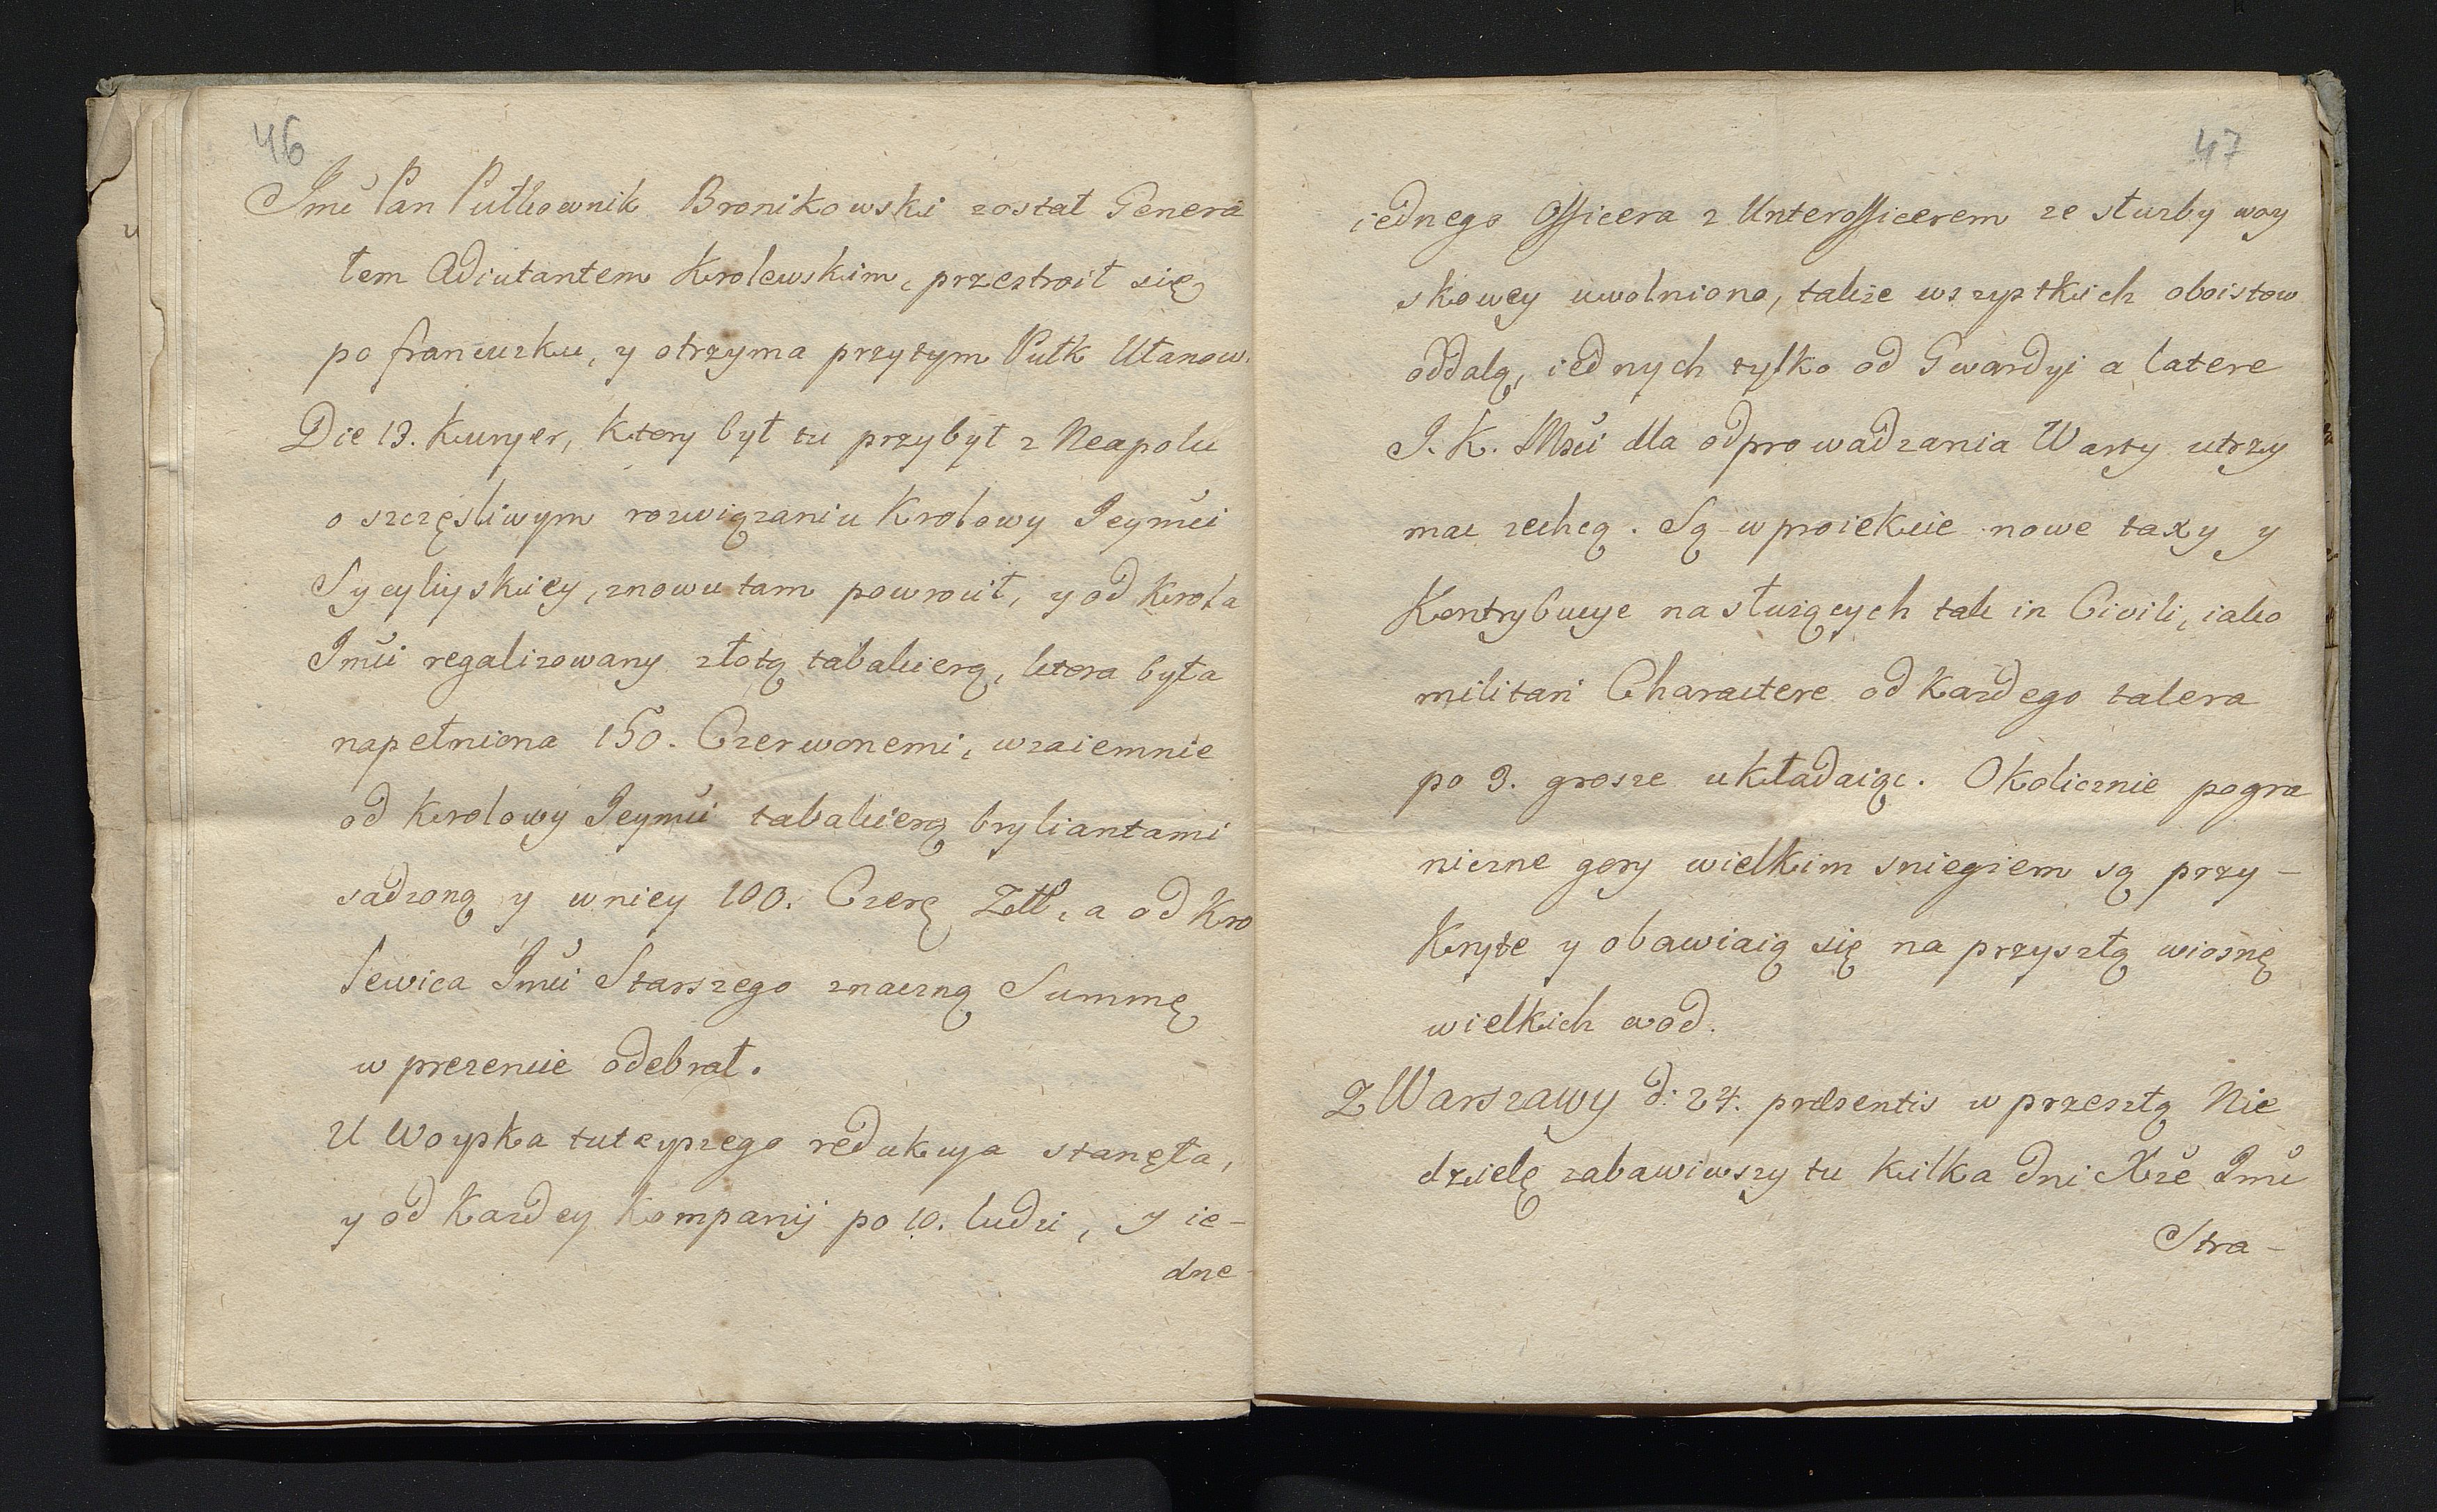 46
Jmć Pan Pułkownik Bronikowski został Generá
łem Adiutantem Krolewskim, przestroił się
po francuzku, y otrzyma przytym Pułk Ułanow.
Die 13. Kuryer, Ktory był tu przybył z Neapolu
o szczęsliwym rozwiązaniu Krolowy Jeymći
Sycyliyskiey, znowu tam powrocił, y od Krola
Jmći regalizowany złotą tabakierą, ktora była
napełniona 150. Czerwonemi, wzaiemnie
od Krolowy Jeymći tabakierą bryliantami
sadzoną y w niey 100. Czerę Złł, a od Kro
lewica Jmći Starszego znaczną Summę
w prezencie odebrał.
U Woyska tuteyszego redukcya stanęła,
y od Kazdey Kompanij po 10. ludzi, y ie-
dne
47
iednego Officera z Unterofficerem ze słuzby woy
skowey uwolniono, także wszystkich oboistow
oddalą, iednych tylko od Gwardyi a latere
J. K. Mści dla odprowadzania Warty utrzy
mac zechcą. Są w proiekcie nowe taxy y
Kontrybucye na słuzących tak in Civili, iako
militari Charactere od Kazdego talera
po 3. grosze układaiąc. Okolicznie pogra
niczne gory wielkim sniegiem są przy-
Kryte y obawiaią się na przyszłą wiosnę
wielkich wod.
Z Warszawy d: 24. præsentis w przeszłą Nie
dzielę zabawiwszy tu kilka dni Xże Jmć
Stra-